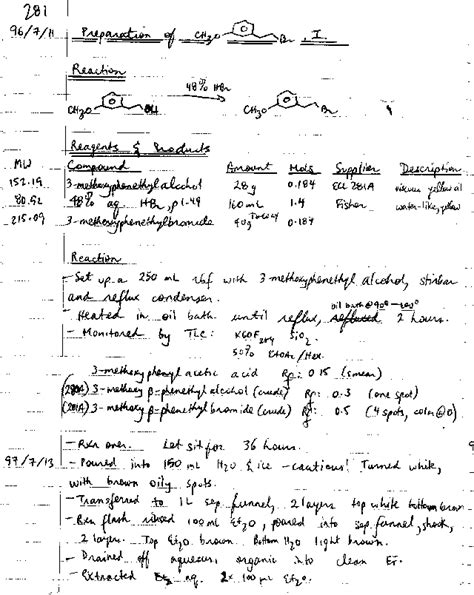 281
96/7/11 Preparation of CH3O Br, I.
Reaction
48% HBr
CH3O OH CH3O Br
Reagents & Products
MW Compound Amount Mols Supplier Description
152.19 3-methoxyphenethyl alcohol 28g 0.184 281A viscous yellow oil
80.92 48% aq HBr, ρ1.49 160mL 1.4 Fisher water-like, yellow
215.09 3-methoxyphenethylbromide 40g Theory 0.184
Reaction
- Set up a 250 mL rbf with 3-methoxyphenethyl alcohol, stirbar
and reflux condenser.
- Heated in oil bath until reflux, refluxed oil bath @ 90° 2 hours.
- Monitored by TLC: K60F254 SiO2
50% EtOAc/Hex.
3-methoxyphenyl acetic acid Rf: 0.15 (smear)
(280A) 3-methoxy β-phenethyl alcohol (crude) Rf: 0.3 (one spot)
(281A) 3-methoxy β-phenethyl bromide (crude) Rf: 0.5 (4 spots, @0)
- Rxn over. Let sit for 36 hours.
97/7/13 - Poured into 150 mL H2O & ice - cautious! Turned white,
with brown oily spots.
- Transferred to 1L sep. funnel, 2 layers top white bottom brown
- Rxn flask rinsed 100mL Et2O, poured into sep. funnel, shook,
2 layers. Top Et2O brown. Bottom H2O light brown.
- Drained off aqueous, organic into clean Er.
- Extracted aq. 2x 100 mL Et2O.